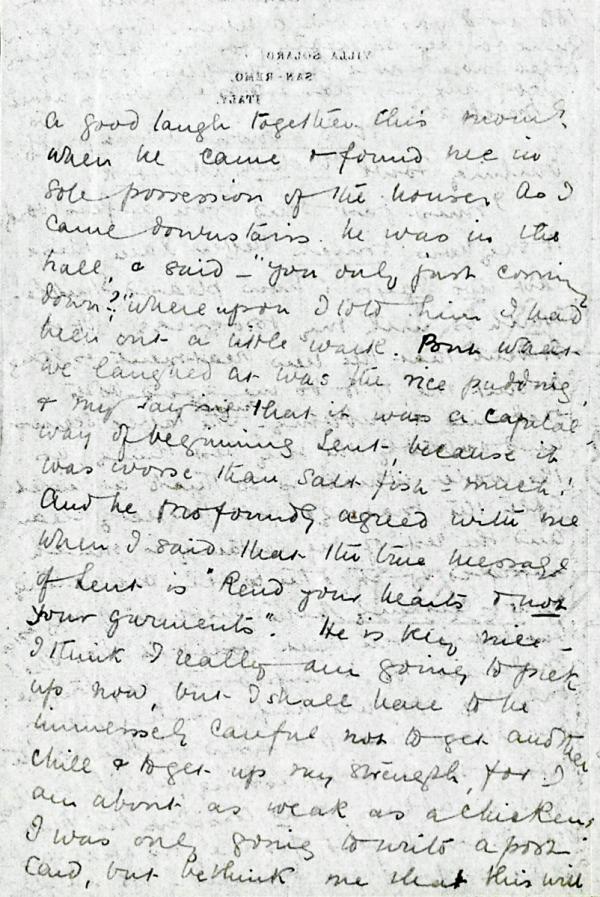 VILLA SOLARO
SAN-REMO.
ITALY.
a good laugh together this morng.
when he came & found me in
sole possession of the house, As I
came downstairs he was in the
hall, & said - "You only just coming
down?" whereupon I told him I had
been out a little walk. But what
we laughed at was the rice pudding,
& my saying that it was a capital
way of beginning Lent, because it
was worse than salt fish - much!
And he profoundly agreed with me
when I said that the true message
of Lent is "Rend your hearts & not
your garments". He is very nice -
I think I really am going to pick
up now, but I shall have to be
immensely careful not to get another
chill & to get up my strength, for I
am about as weak as a chicken,
I was only going to write a post
card, but bethink me that this will